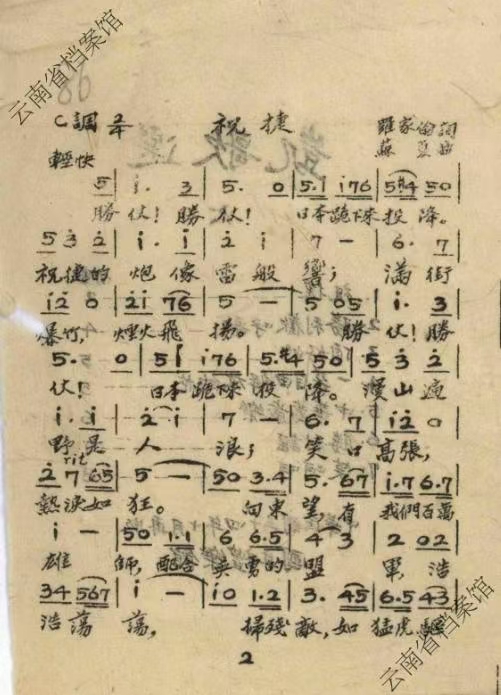 云南省档案馆
C調 2/4 祝捷 羅家倫詞
輕快 蘇夏曲
5 | i. 3 | 5. 0 | 5.i i76 | 5#4 50 |
勝仗! 勝仗! 日本跪下來投降。
5 3 2 | i. i | 2 i | 7 — | 6. 7 |
祝捷的炮像雷般響; 滿街
i2 0 | 2i 76 | 5 — | 5 05 | i. 3 |
爆竹, 煙火飛揚。 勝仗! 勝
5. 0 | 5i i76 | 5.#4 50 | 5 3 2 |
仗! 日本跪下來投降。 漫山遍
i. i | 2 i | 7 — | 6. 7 | i2 0 |
野是人浪; 笑口高張,
rit
2 7 65 | 5 — | 50 3.4 | 5. 67 | i.7 6.7 |
熱淚如狂。 向東望有我們百萬
i — | 50 1.1 | 6 6.5 | 4 3 | 2 02 |
雄師, 配合英勇的盟軍, 浩
34 567 | i — | i0 1.2 | 3. 45 | 6.5 43 |
浩蕩蕩, 掃殘敵, 如猛虎驅
2
云南省档案馆